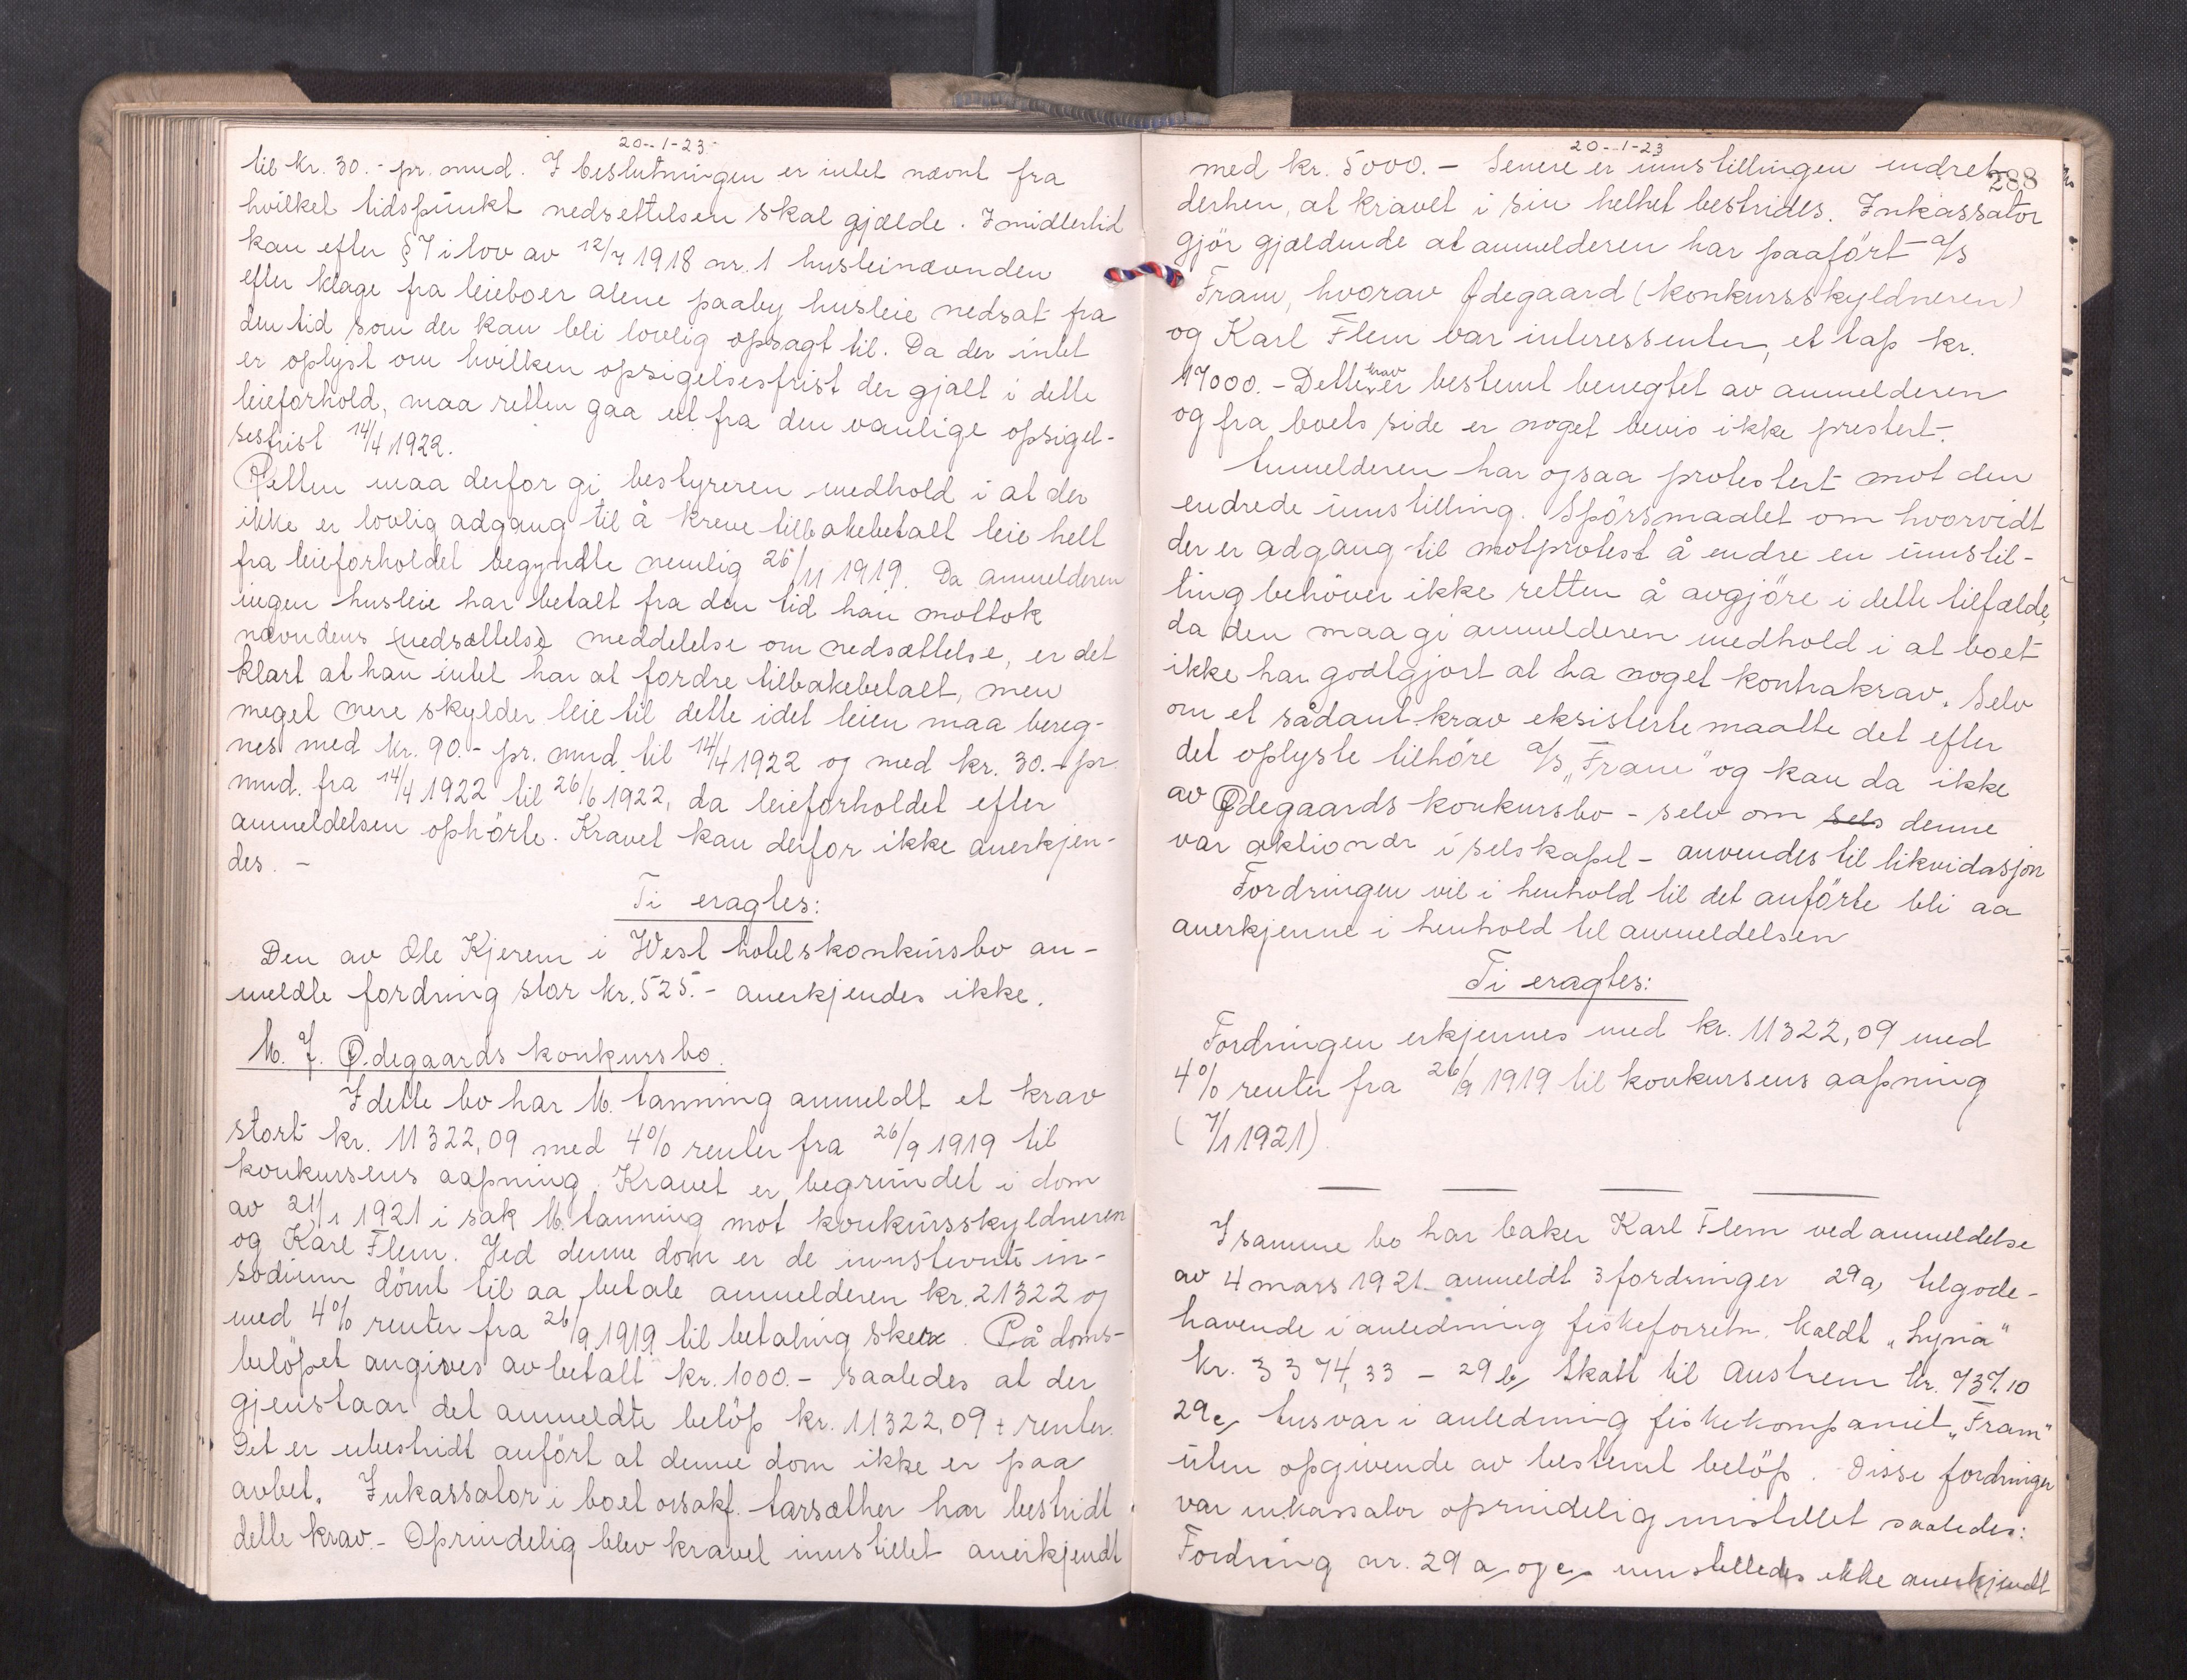 20-1-23
til kr. 30.- pr. mnd. I beslutningen er intet nævnt fra
hvilket tidspunkt nedsettelsen skal gjælde. Imidlertid
kan efter § 7 i lov av 12/7 1918 nr. 1 husleinævnden
efter klage fra leieboer alene paaby husleie nedsat fra
den tid som der kan bli lovlig opsagt til. Da der intet
er oplyst om hvilken opsigelsesfrist der gjalt i dette
leieforhold, maa retten gaa ut fra den vanlige opsigel-
sesfrist 14/4 1922.
Retten maa derfor gi bestyreren medhold i at der
ikke er lovlig adgang til å kreve tilbakebetalt leie helt
fra leieforholdet begyndte nemlig 26/11 1919. Da anmelderen
ingen husleie har betalt fra den tid han mottok
nævndens (nedsættelse) meddelelse om nedsættelse, er det
klart at han intet har at fordre tilbakebetalt, men
meget mere skylder leie til dette idet leien maa bereg-
nes med kr. 90.- pr. mnd. til 14/4 1922 og med kr. 30.- pr.
mnd. fra 14/4 1922 til 26/6 1922, da leieforholdet efter
anmeldelsen ophörte. Kravet kan derfor ikke anerkjen-
des. -
Ti eragtes:
Den av Ole Kjerem i West hotelskonkursbo an-
meldte fordring stor kr. 525.- anerkjendes ikke.
M. J. Ødegaards konkursbo.
I dette bo har M. Lanning anmeldt et krav
stort kr. 11322,09 med 4% renter fra 26/9 1919 til
konkursens aapning. Kravet er begrundet i dom
av 21/1 1921 i sak M. Lanning mot konkursskyldneren
og Karl Flem. Ved denne dom er de innstevnte in-
sodium dömt til aa betale anmelderen kr. 21322 og
med 4% renter fra 26/9 1919 til betaling skeer. På doms-
belöpet angives avbetalt kr. 1000.- saaledes at der
gjenstaar det anmeldte belöp kr. 11322,09 + renter.
Det er ubestridt anfört at denne dom ikke er paa
anket. Inkassator i boet orsakf. Larsæther har bestridt
dette krav.- Oprindelig blev kravet innstillet anerkjendt
20-1-23
288
med kr. 5000.- Senere er innstillingen endret
derhen, at kravet i sin helhet bestrides. Inkassator
gjör gjældende at anmelderen har paafört a/s
Fram, hvorav Ødegaard (konkursskyldneren)
og Karl Flem var interessenter, et tap kr.
17000.- Dette krav er bestemt benegtet av anmelderen
og fra boets side er noget bevis ikke prestert.
Anmelderen har ogsaa protestert mot den
endrede innstilling. Spörsmaalet om hvorvidt
der er adgang til motprotest å endre en innstil-
ling behöver ikke retten å avgjöre i dette tilfælde,
da den maa gi anmelderen medhold i at boet
ikke har godtgjort at ha noget kontrakrav. Selv
om et sådant krav eksisterte maatte det efter
det oplyste tilhöre a/s "Fram" og kan da ikke
av Ødegaards konkursbo - selv om sels denne
var aktionær i selskapet - anvendes til likvidasjon
Fordringen vil i henhold til det anförte bli aa
anerkjenne i henhold til anmeldelsen
Ti eragtes:
Fordringen erkjennes med kr. 11322,09 med
4% renter fra 26/9 1919 til konkursens aapning
(7/1 1921).
I samme bo har baker Karl Flem ved anmeldelse
av 4 mars 1921 anmeldt 3 fordringer 29a, tilgode-
havende i anledning fiskeforretn. kaldt "Lyna"
kr. 3374,33 - 29 b, Skatt til Austrem kr. 737,10
29c, Ansvar i anledning fiskekompaniet "Fram"
uten opgivende av bestemt belöp. Disse fordringer
var inkassator oprindelig innstillet saaledes:
Fordring nr. 29 a, og c, innstilledes ikke anerkjendt